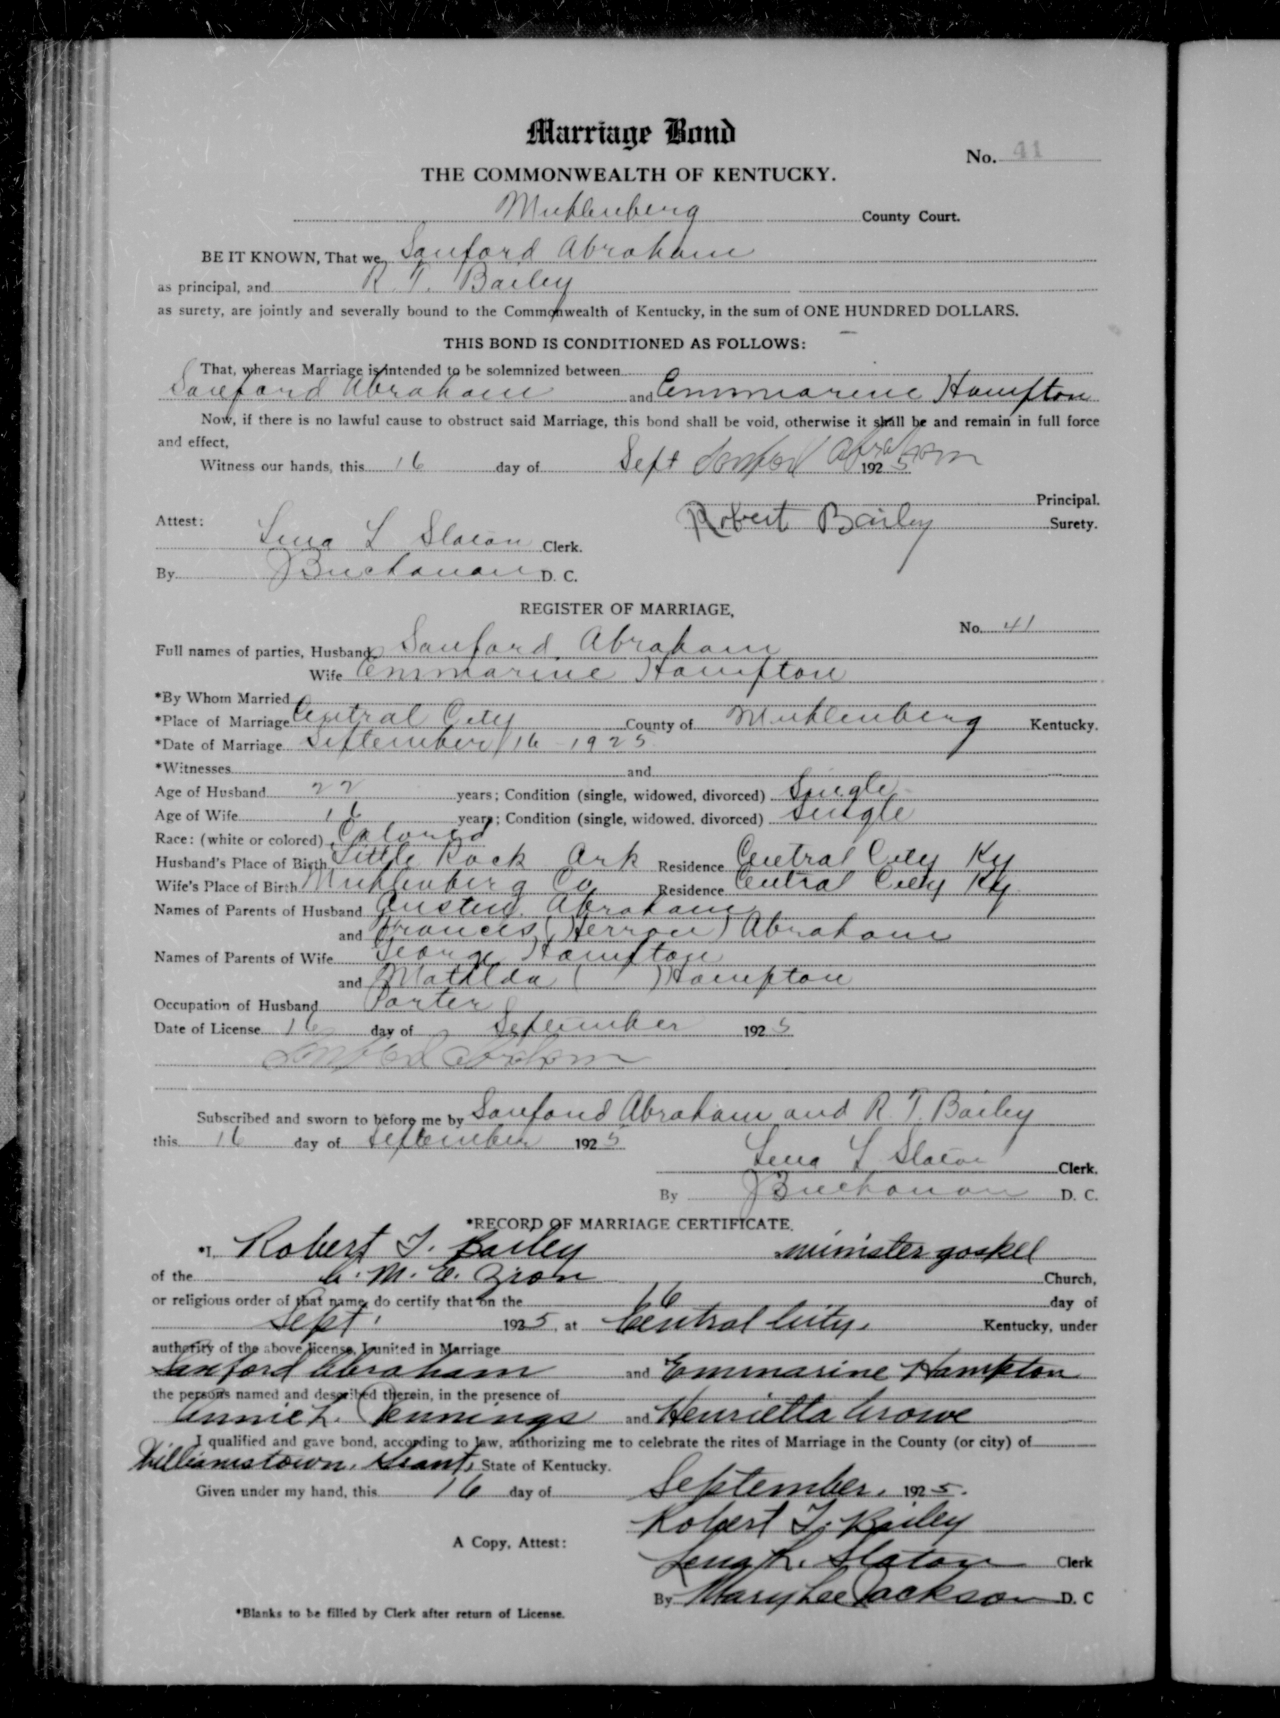 Marriage Bond
No. 41
THE COMMONWEALTH OF KENTUCKY.
Muhlenberg County Court.
BE IT KNOWN, That we, Sanford Abraham
as principal, and R. T. Bailey
as surety, are jointly and severally bound to the Commonwealth of Kentucky, in the sum of ONE HUNDRED DOLLARS.
THIS BOND IS CONDITIONED AS FOLLOWS:
That, whereas Marriage is intended to be solemnized between
Sanford Abraham and Emmarine Hampton
Now, if there is no lawful cause to obstruct said Marriage, this bond shall be void, otherwise it shall be and remain in full force
and effect,
Witness our hands, this 16 day of Sept 1925
Sanford Abraham
Principal.
Attest: Robert Bailey Surety.
Lena L Slaton Clerk.
By J Buchanan D. C.
REGISTER OF MARRIAGE,
No. 41
Full names of parties, Husband Sanford Abraham
Wife Emmarine Hampton
*By Whom Married
*Place of Marriage Central City County of Muhlenberg Kentucky.
*Date of Marriage September 16 - 1925
*Witnesses and
Age of Husband 22 years; Condition (single, widowed, divorced) Single
Age of Wife 16 years; Condition (single, widowed, divorced) Single
Race: (white or colored) Colored
Husband's Place of Birth Little Rock Ark Residence Central City Ky
Wife's Place of Birth Muhlenberg Co Residence Central City Ky
Names of Parents of Husband Austin Abraham
and Frances (Herron) Abraham
Names of Parents of Wife George Hampton
and Matilda ( ) Hampton
Occupation of Husband Porter
Date of License 16 day of September 1925
Sanford Abraham
Subscribed and sworn to before me by Sanford Abraham and R. T. Bailey
this 16 day of September 1925
Lena L Slaton Clerk.
By J Buchanan D. C.
*RECORD OF MARRIAGE CERTIFICATE.
*I, Robert T. Bailey minister gospel
of the A. M. E. Zion Church,
or religious order of that name, do certify that on the 16 day of
Sept. 1925, at Central City, Kentucky, under
authority of the above license, I united in Marriage
Sanford Abraham and Emmarine Hampton
the persons named and described therein, in the presence of
Annie L. Jennings and Henrietta Crowe
I qualified and gave bond, according to law, authorizing me to celebrate the rites of Marriage in the County (or city) of
Williamstown, Grant, State of Kentucky.
Given under my hand, this 16 day of September, 1925.
Robert T. Bailey
A Copy, Attest:
Lena L. Slaton Clerk
By Mary Lee Jackson D. C
*Blanks to be filled by Clerk after return of License.